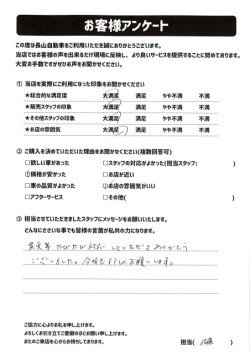 お客様アンケート
この度は長山自動車をご利用いただき誠にありがとうございます。
当店ではお客様の声をお聞かせ頂ける飛び込み、より良いサービスを提供することに努めております。
大変お手数ですがぜひお声をお聞かせください。
① 当店を実際にご利用になった印象をお聞かせください
★総合的な満足度 大満足 満足 やや不満 不満
★販売スタッフの印象 大満足 満足 やや不満 不満
★その他スタッフの印象 大満足 満足 やや不満 不満
★お店の雰囲気 大満足 満足 やや不満 不満
② ご購入を決めていただいた理由をお聞かせください(複数回答可)
□欲しい車があった □スタッフの対応がよかった(担当スタッフ: )
□価格が安かった □お店が近い
□車の品質がよかった □お店の雰囲気がいい
□アフターサービス □その他( )
③ 担当させていただきましたスタッフにメッセージをお願いいたします。
どんなにささいな事でも皆様の言葉が私共の力になります。
対応していただきありがとう
ございました。今後も宜しくお願いします。
ご協力に心よりお礼を申し上げます。
よろしくお引き立てご愛顧のほどお願い申し上げます。
またのご来店を心からお待ちしております。
担当( )